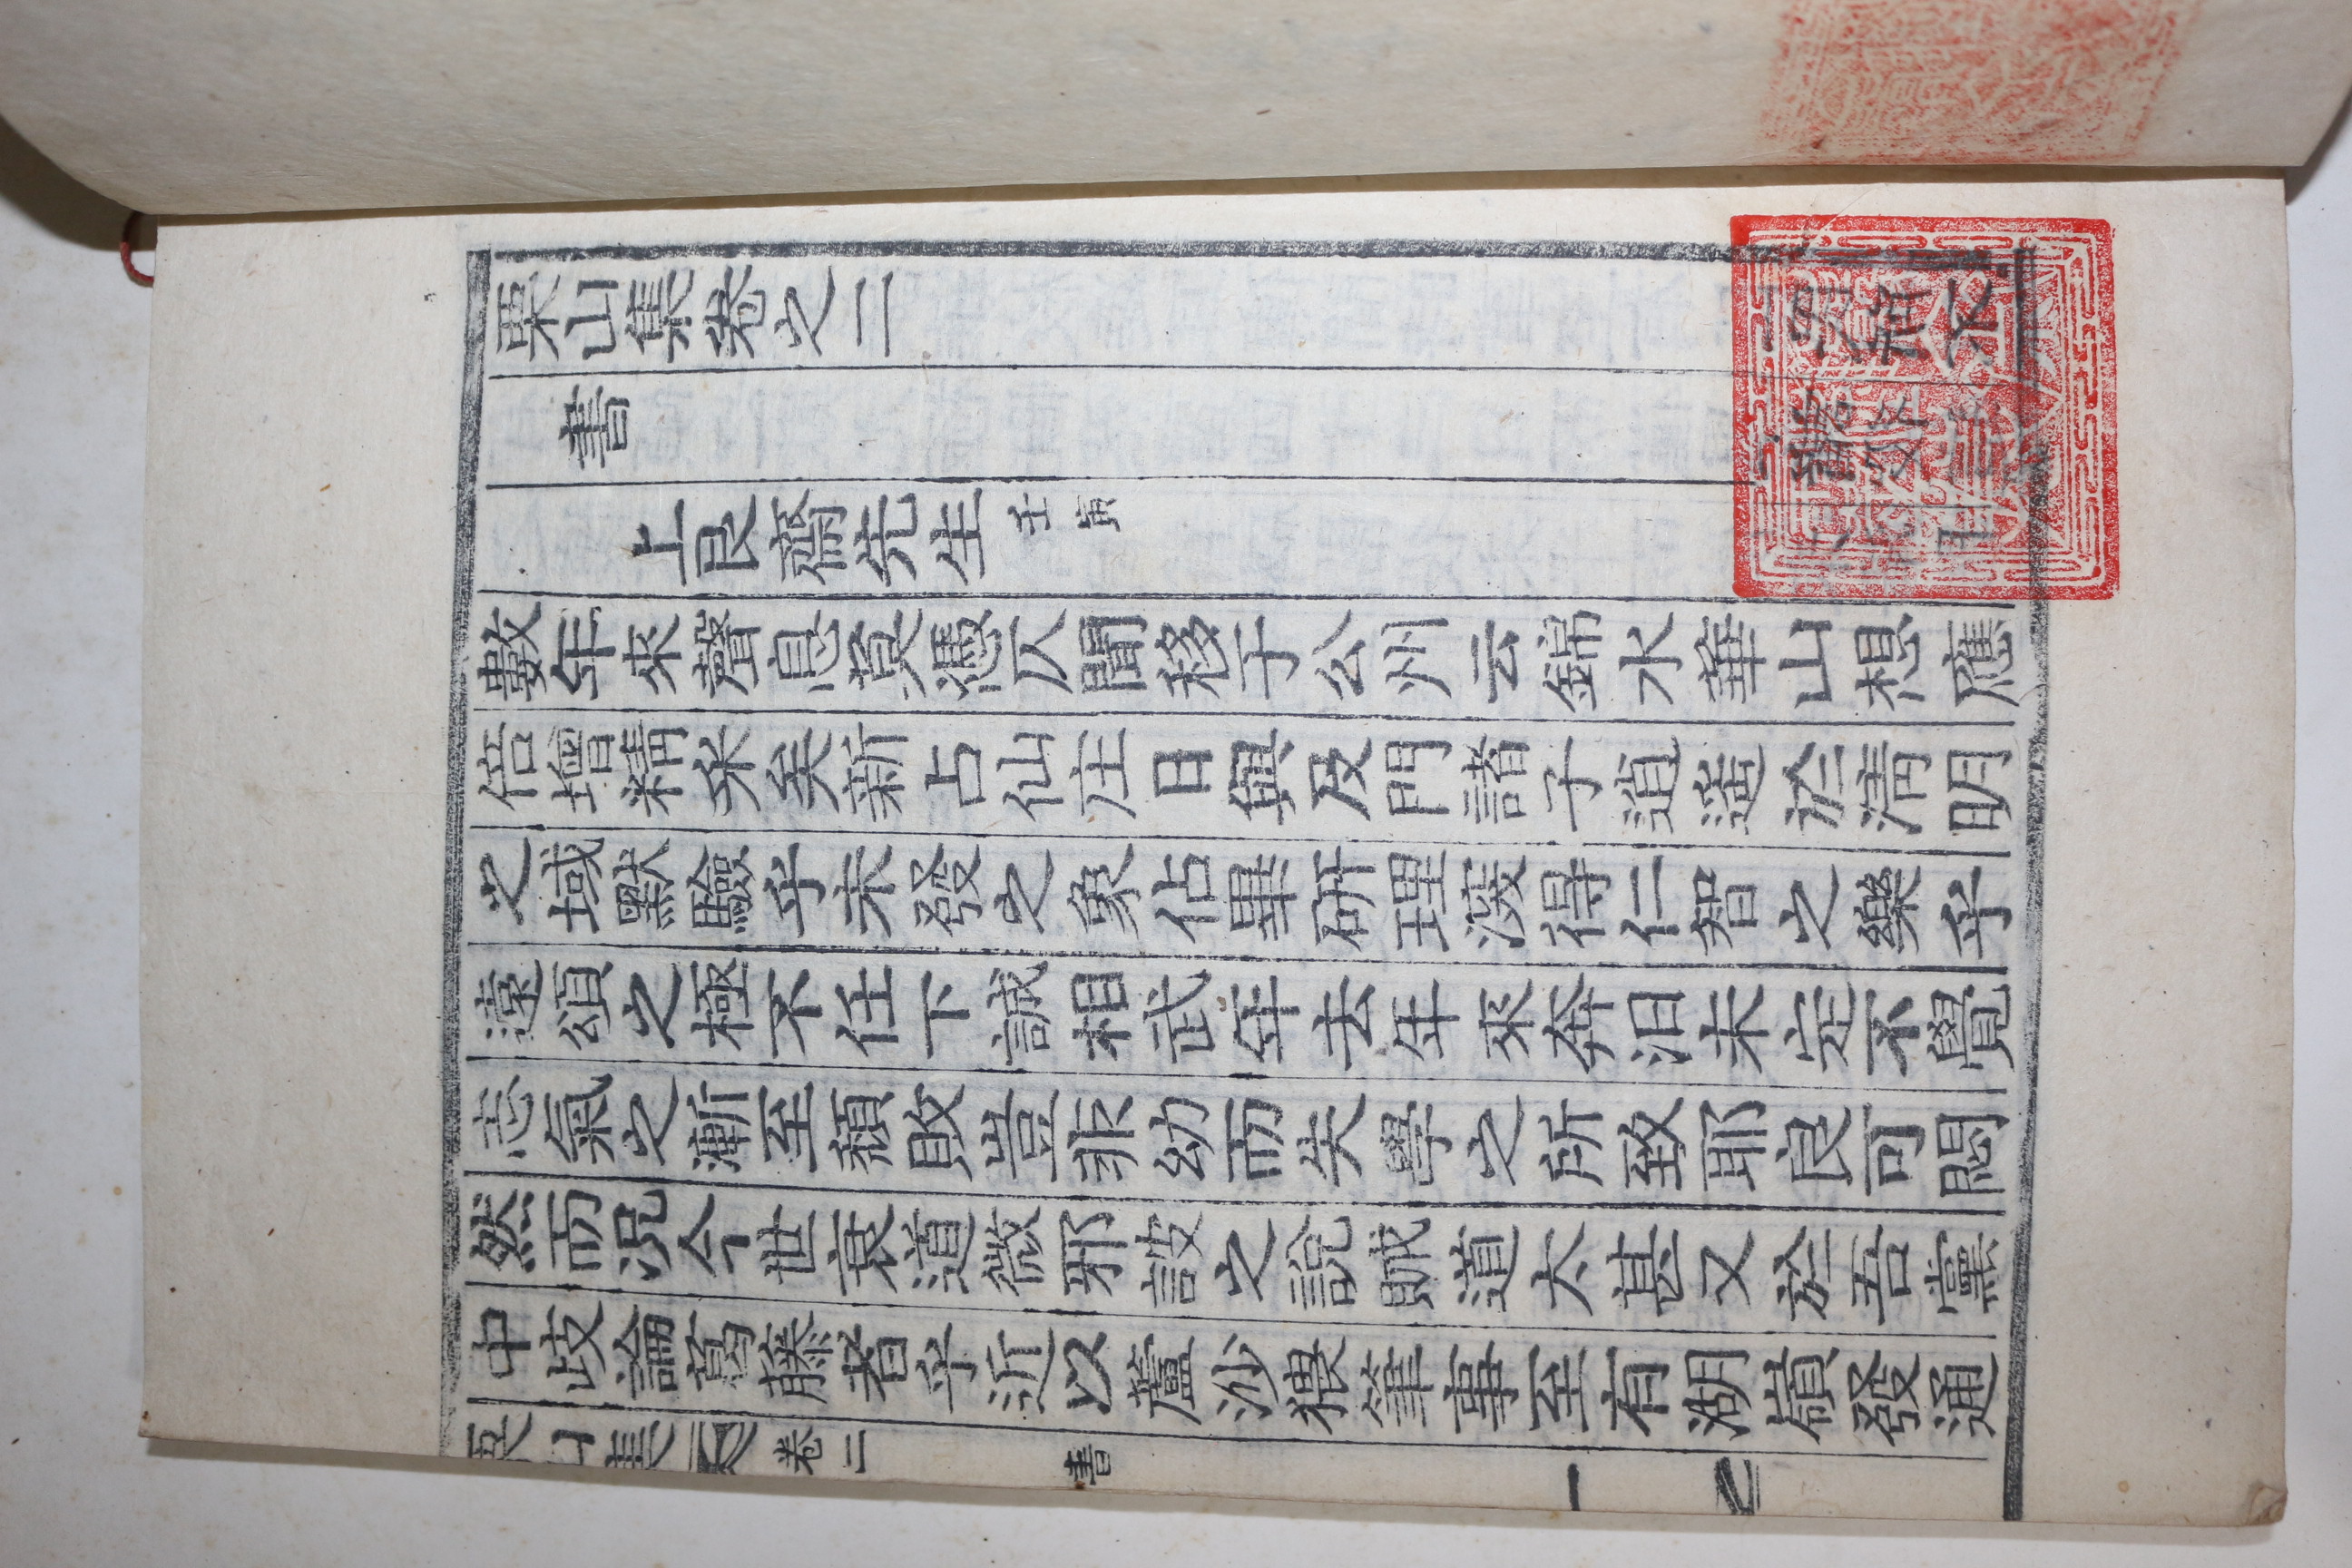 栗山集卷之二
書
上艮齋先生 壬寅
數年來聲息莫憑仄聞移于公州云錦水華山想應
倍增精采矣新占仙庄日與及門諸子逍遙於淸明
之域默驗乎未發之象佔畢硏理深得仁智之樂乎
遠頌之極不任下誠相武年去年來奔汩未定不覺
志氣之漸至頹敗豈非幼而失學之所致耶良可悶
然而况今世衰道微邪詖之說賊道太甚又於吾黨
中歧論葛藤者乎近以蘆沙猥筆事至有湖嶺發通
栗山集 卷二 書 一